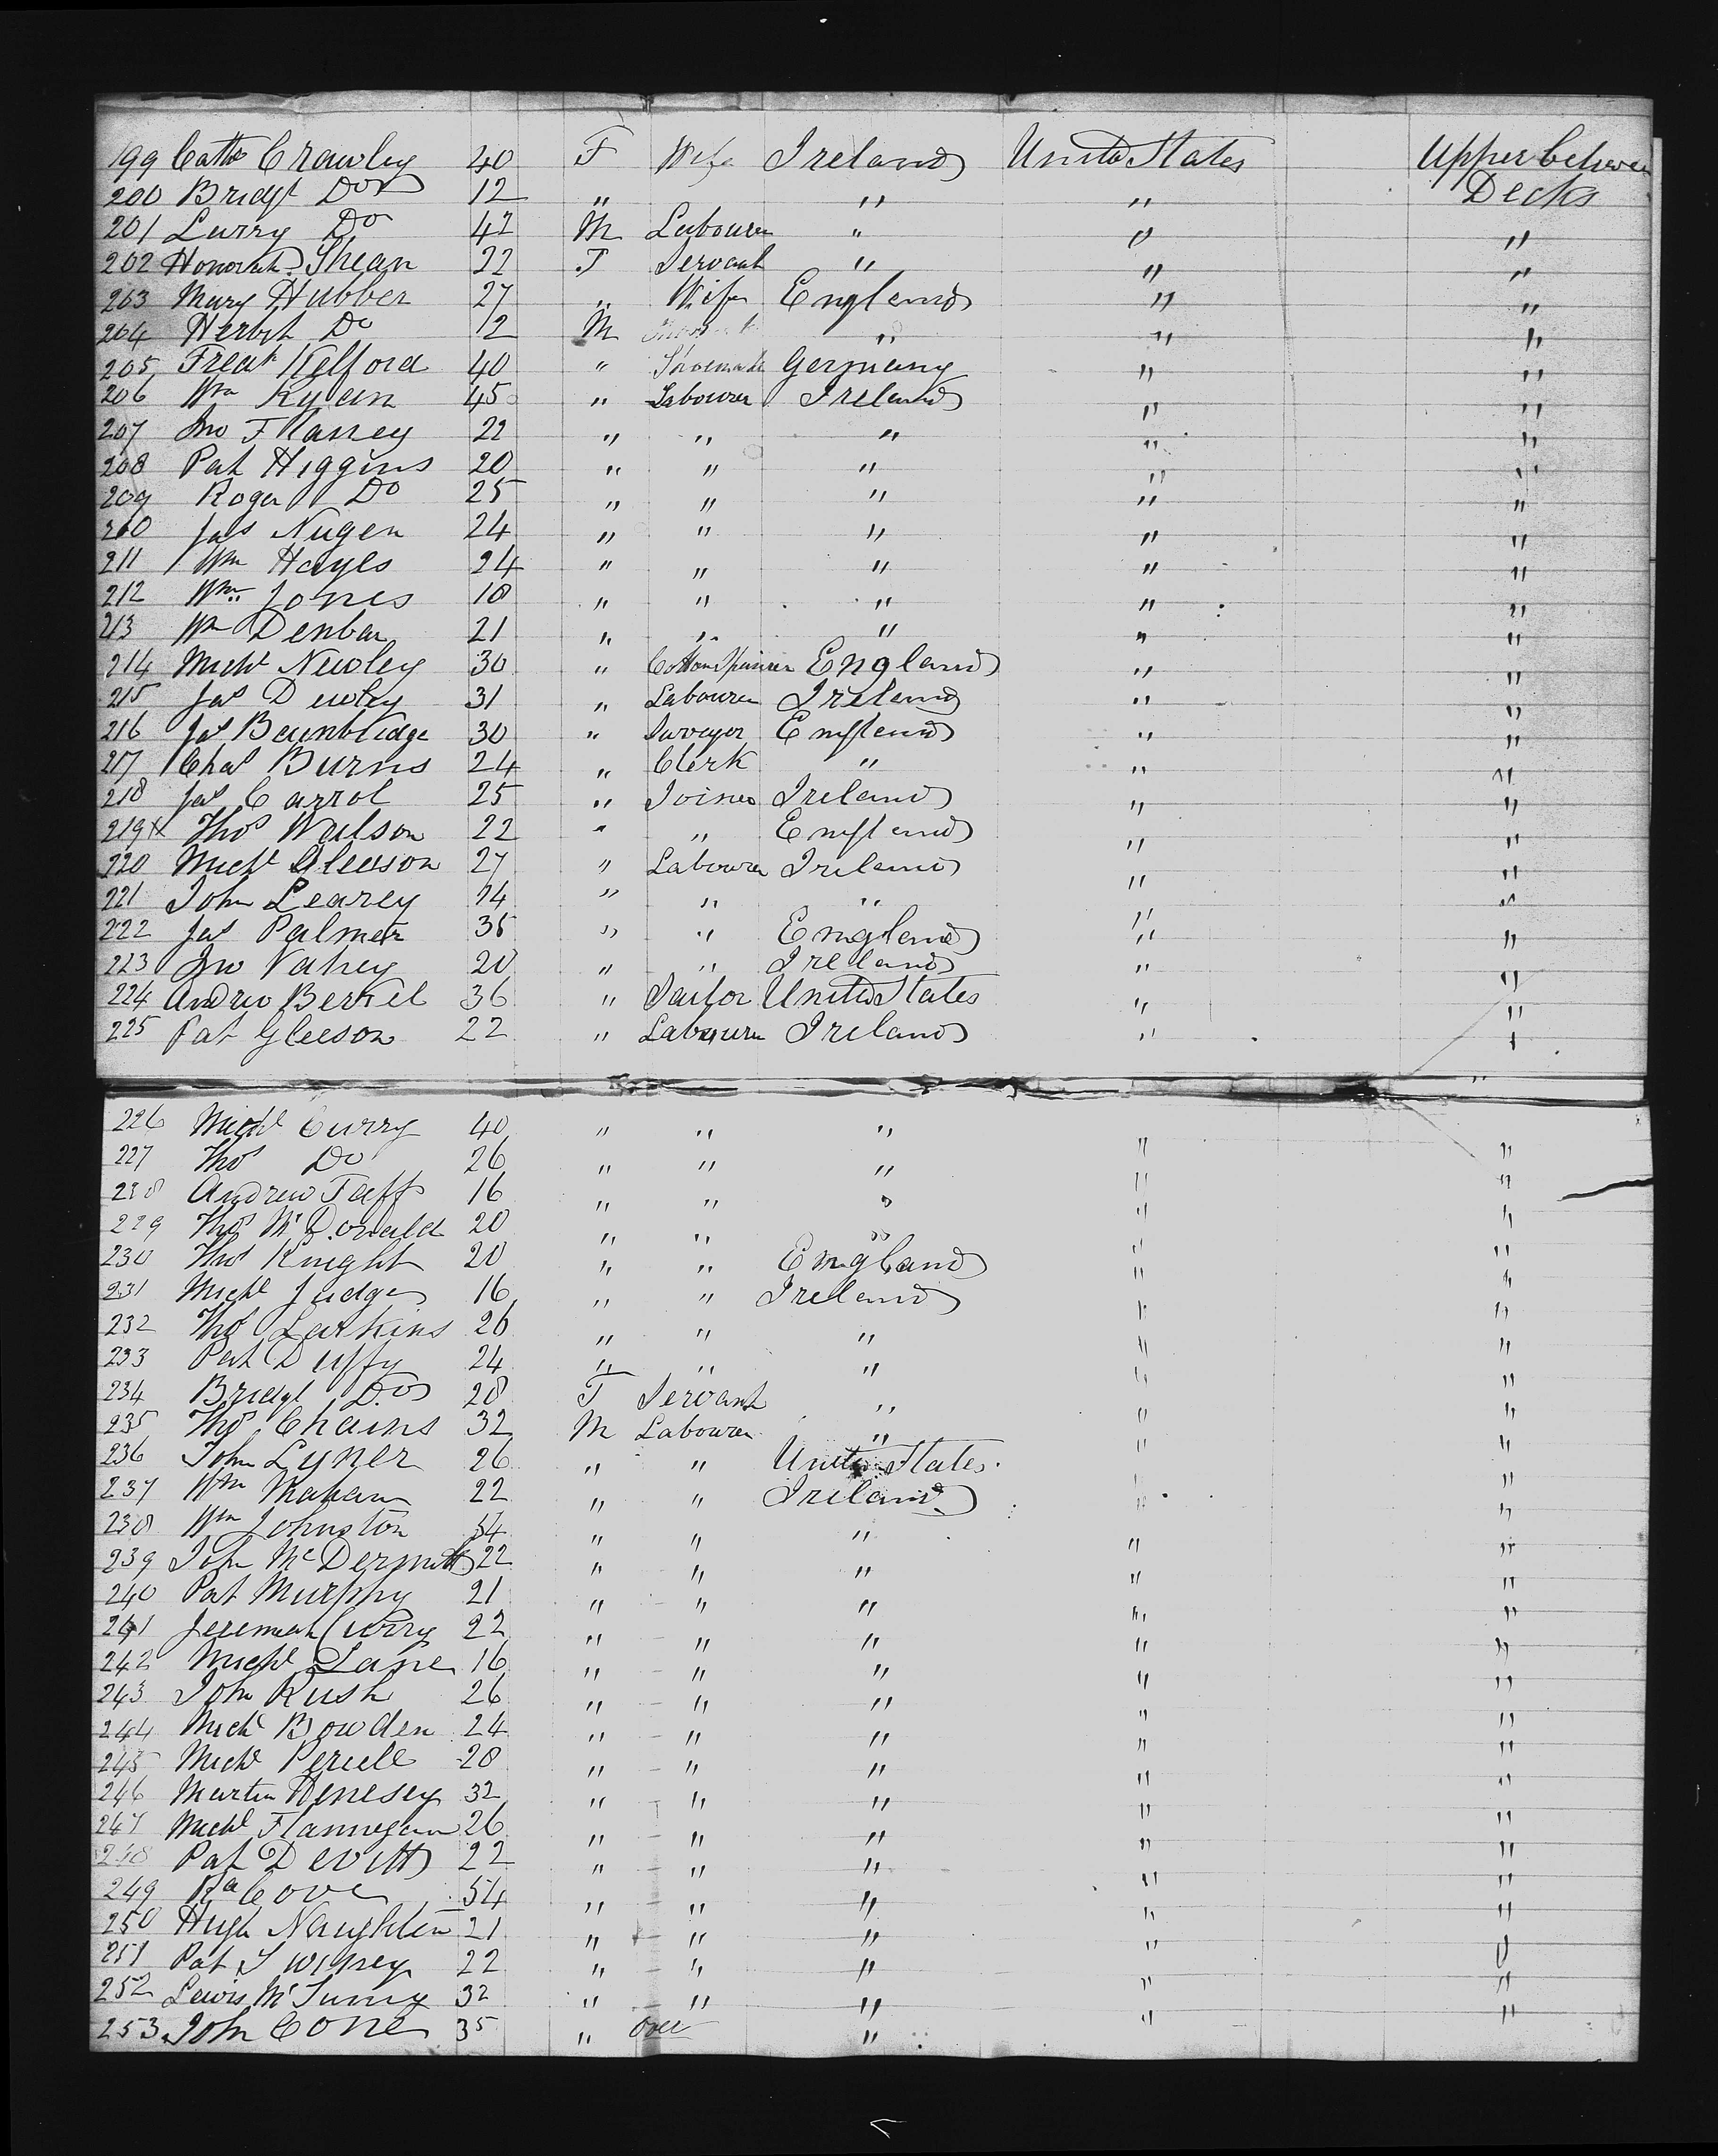 199 Cathe Crawley 40 F Wife Ireland United States Upper between
200 Bridgt Do 12 " " " Decks
201 Larry Do 42 M Labourer " " "
202 Honorah Shean 22 F Servant " " "
203 Mary Hubber 27 " Wife England " "
204 Herbt Do 12 M " " "
205 Fredk Kelford 40 " Shoemaker Germany " "
206 Wm Ryan 45 " Labourer Ireland " "
207 Jno Flaney 22 " " " " "
208 Pat Higgins 20 " " " " "
209 Roger Do 25 " " " " "
210 Jas Nugen 24 " " " " "
211 Wm Hayes 24 " " " " "
212 Wm Jones 18 " " " " "
213 Wm Denban 21 " " " " "
214 Michl Newley 30 " Cotton Spinner England " "
215 Jas Dewley 31 " Labourer Ireland " "
216 Jas Baunblidge 30 " Surveyor England " "
217 Chas Burns 24 " Clerk " " "
218 Jas Carrol 25 " Joiner Ireland " "
219 x Thos Watson 22 " " England " "
220 Michl Gleeson 27 " Labourer Ireland " "
221 John Learey 24 " " " " "
222 Jas Palmer 35 " " England " "
223 Jno Vahey 20 " " Ireland " "
224 Andrw Berkel 36 " Sailor United States " "
225 Pat Gleeson 22 " Labourer Ireland " "
226 Michl Curry 40 " " " " "
227 Thos Do 26 " " " " "
228 Andrew Taff 16 " " " " "
229 Thos McDonald 20 " " " " "
230 Thos Knight 20 " " England " "
231 Michl Judge 16 " " Ireland " "
232 Thos Larkins 26 " " " " "
233 Pat Duffy 24 " " " " "
234 Bridgt Do 28 F Servant " " "
235 Thos Chains 32 M Labourer " " "
236 John Lyner 26 " " United States " "
237 Wm Mahan 22 " " Ireland " "
238 Wm Johnston 54 " " " " "
239 John McDermott 22 " " " " "
240 Pat Murphy 21 " " " " "
241 Jeremiah Curry 22 " " " " "
242 Michl Lane 16 " " " " "
243 John Rush 26 " " " " "
244 Michl Bowden 24 " " " " "
245 Michl Perele 28 " " " " "
246 Martin Henesey 32 " " " " "
247 Michl Flannegan 26 " " " " "
248 Pat Devitt 22 " " " " "
249 Rd Cove 54 " " " " "
250 Hugh Naughten 21 " " " " "
251 Pat Swiney 22 " " " " "
252 Lewis 32 " " " " "
253 John Cone 35 " over " " "